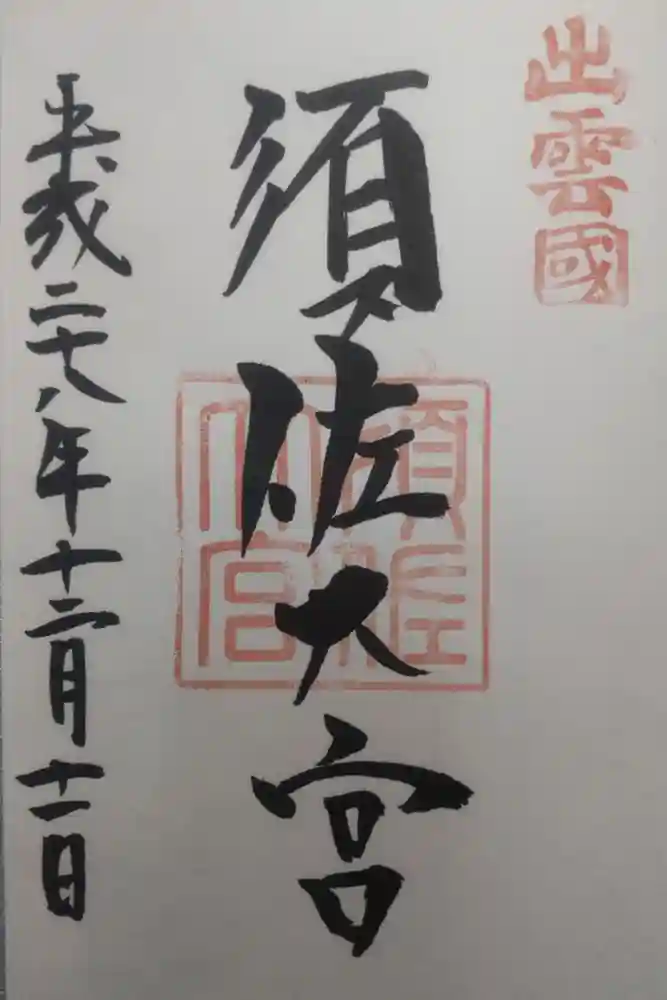 出雲國
須佐大宮
須佐大宮
平成二十八年十二月十一日